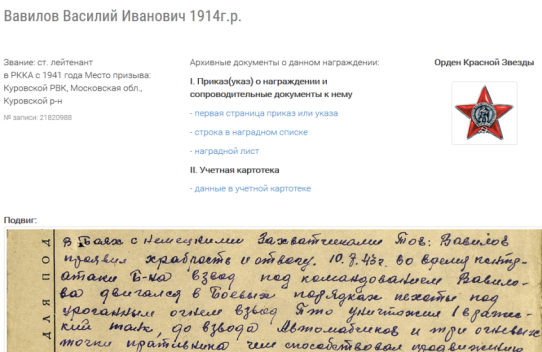 Вавилов Василий Иванович 1914г.р.
Звание: ст. лейтенант
в РККА с 1941 года Место призыва:
Куровской РВК, Московская обл.,
Куровской р-н
№ записи: 21820988
Архивные документы о данном награждении:
I. Приказ(указ) о награждении и
сопроводительные документы к нему
- первая страница приказ или указа
- строка в наградном списке
- наградной лист
II. Учетная картотека
- данные в учетной картотеке
Орден Красной Звезды
Подвиг:
для под
В Боях с немецкими Захватчиками Тов: Вавилов
проявил храбрость и отвагу. 10.8.43г. во время контр-
атаки Б-на взвод под командованием Вавило-
ва двигался в Боевых порядках пехоты под
ураганным огнем взвод Пто уничтожил 1 враже-
ский танк, до взвода Автоматчиков и три огневых
точки противника чем способствовал продвижению